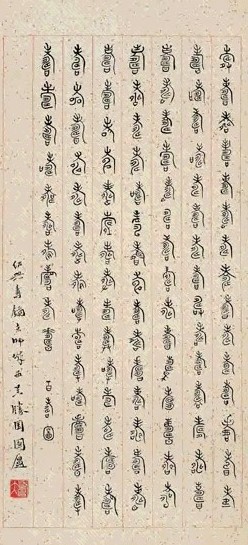 壽壽壽壽壽壽壽壽壽壽壽壽壽壽壽
壽壽壽壽壽壽壽壽壽壽壽壽壽壽壽
壽壽壽壽壽壽壽壽壽壽壽壽壽壽壽
壽壽壽壽壽壽壽壽壽壽壽壽壽壽壽
壽壽壽壽壽壽壽壽壽壽壽壽壽壽壽
壽壽壽壽壽壽壽壽壽壽壽壽壽壽壽
壽壽壽壽壽壽壽壽壽壽 百壽圖
老師